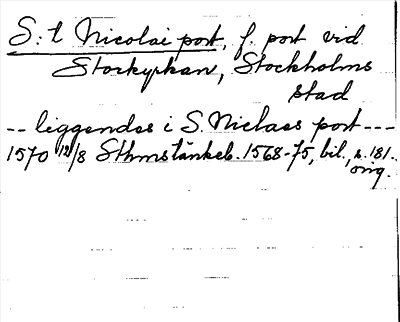 S:t Nicolai port, f. port vid
Storkyrkan, Stockholms
stad
-- liggendes i S. Niclaes port ---
1570 12/8 Sthmstänkeb. 1568-75, bil., s. 181.
orig.